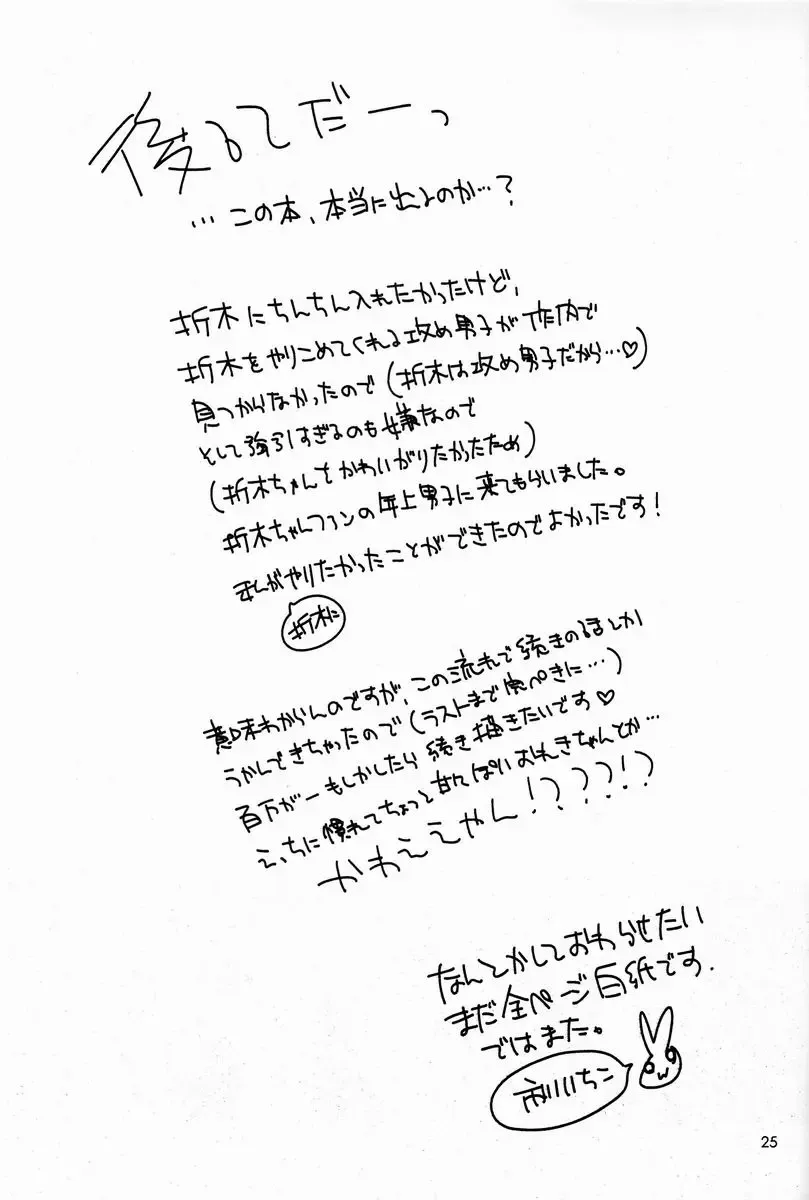 後るてだーっ
…この本、本当に出るのか…?
折木にちんちん入れたかったけど、
折木をやりこめてくれる攻め男子が作内で
見つからなかったので(折木は攻め男子だから…♡)
そして強引すぎるのも嫌なので
(折木ちゃんをかわいがりたかったため)
折木ちゃんファンの年上男子に来てもらいました。
私がやりたかったことができたのでよかったです!
折木に
意味わからんのですが、この流れで続きのるまとか
うかんできちゃったので(ラストまで完ぺきに…)
百万が一もしかしたら続き描きたいです♡
えっちに慣れてちょっと甘えっぽいおれきちゃんとか…
かわええやん!????!?
なんとかしておわらせたい
まだ全ページ白紙です.
ではまた。
市川いちこ
25